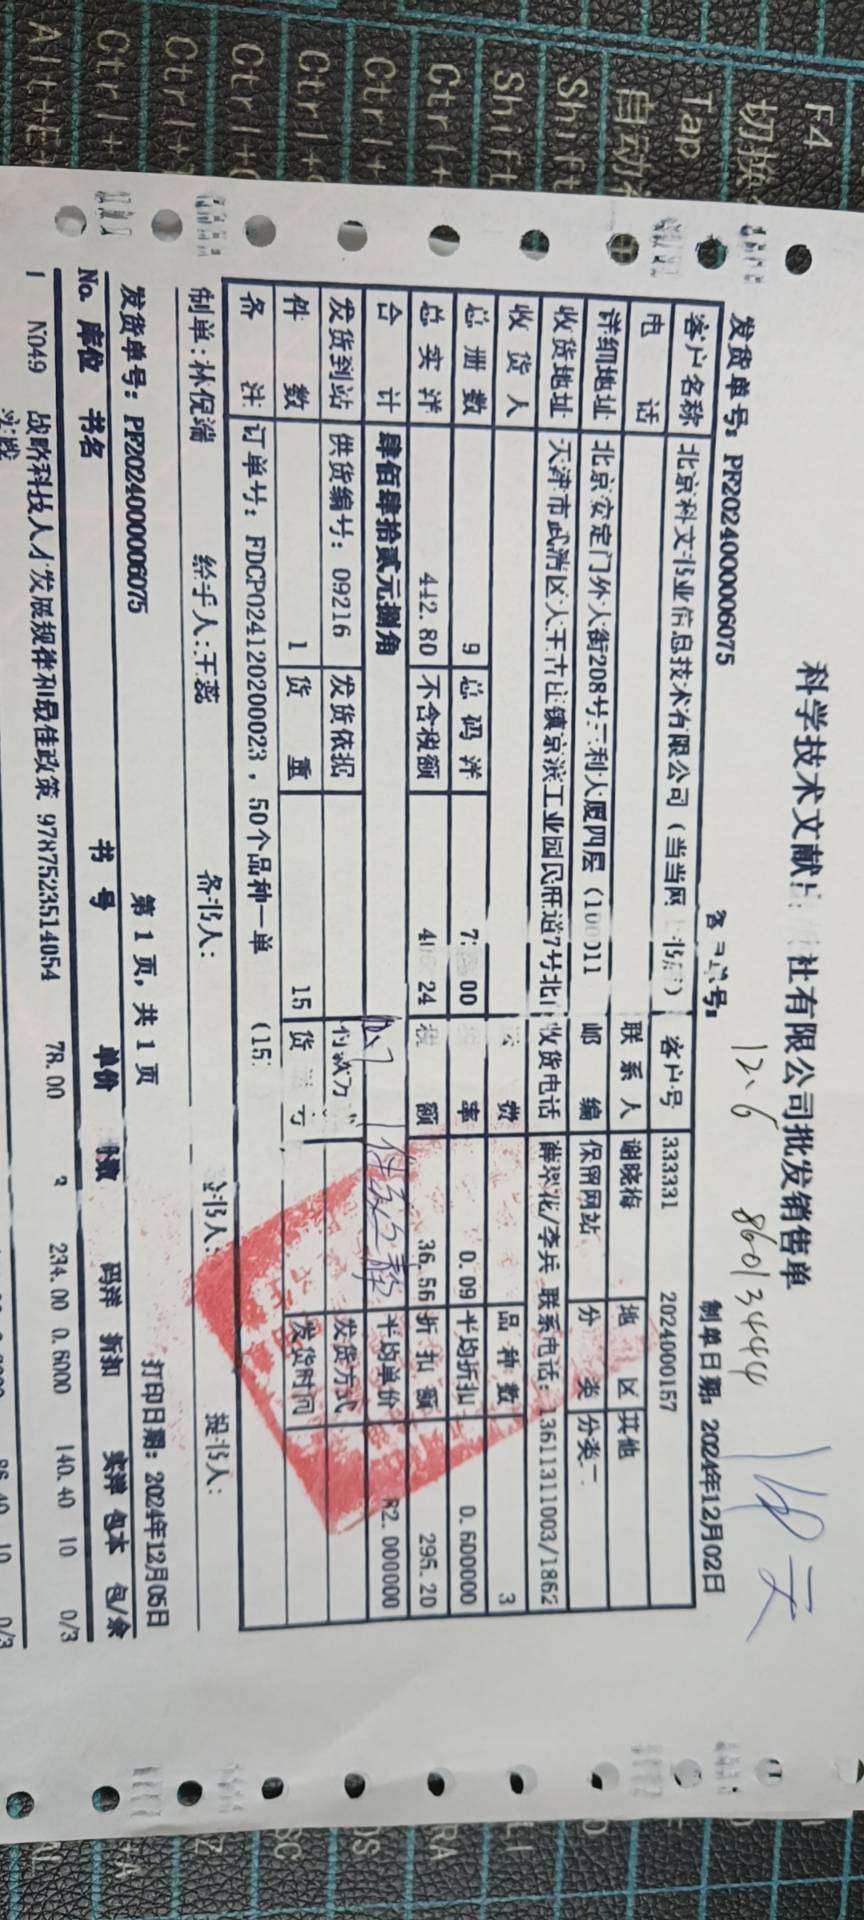 科学技术文献 社有限公司批发销售单
12.6 86013444
发货单号: PF2024000006075 制单日期: 2024年12月02日
客户名称 北京科文书业信息技术有限公司(当当网 客户号 333331 2024000157
电 话 联系人 谢晓梅 地 区 其他
详细地址 北京安定门外大街208号三利大厦四层(100011 邮 编 保留网站 分 类 分类二
收货地址 天津市武清区大王古庄镇京滨工业园民旺道7号北 收货电话 薛翠花/李兵 联系电话: 13611311003/1862
收 货 人 费 品 种 数 3
总 册 数 9 总 码 洋 00 率 0.09 平均折扣 0.600000
总 实 洋 442.80 不含税额 24 额 36.56 折 扣 额 295.20
合 计 肆佰肆拾贰元捌角 平均单价 82.000000
发货到站 供货编号: 09216 发货依据 发货方式
件 数 1 货 重 15 货 发货时间
备 注 订单号: FDCP024120200023 , 50个品种一单 (15:
制单: 林倪端 经手人: 王蕊 备书人: 提书人:
发货单号: PF2024000006075 第 1 页, 共 1 页 打印日期: 2024年12月05日
No. 库位 书名 书 号 单价 册数 码洋 折扣 实洋 包本 包/余
1 N049 战略科技人才发展规律和最佳政策 9787523514054 78.00 3 234.00 0.6000 140.40 10 0/3
实践
86.40 10 0/3
F4
切换
Tap
Shift
Shift
Ctrl+
Ctrl+
Ctrl+
Ctrl+
Ctrl+
Alt+E+